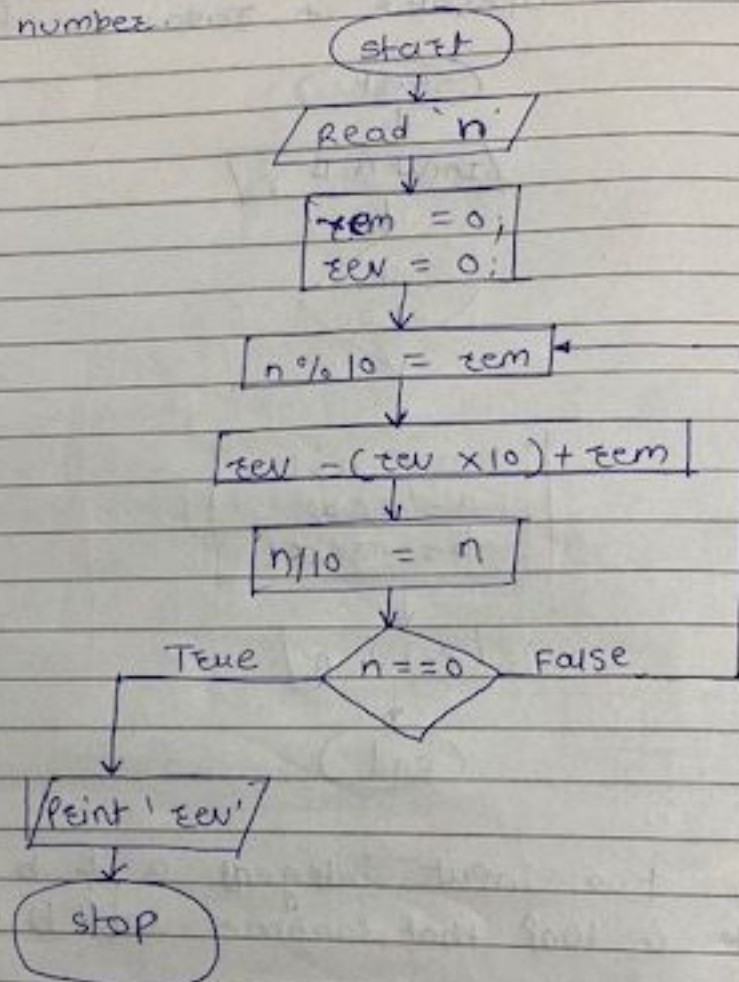 number.
start
Read 'n'
rem = 0;
rev = 0;
n % 10 = rem
rev = (rev × 10) + rem
n/10 = n
True
n==0
False
Print 'rev'
stop